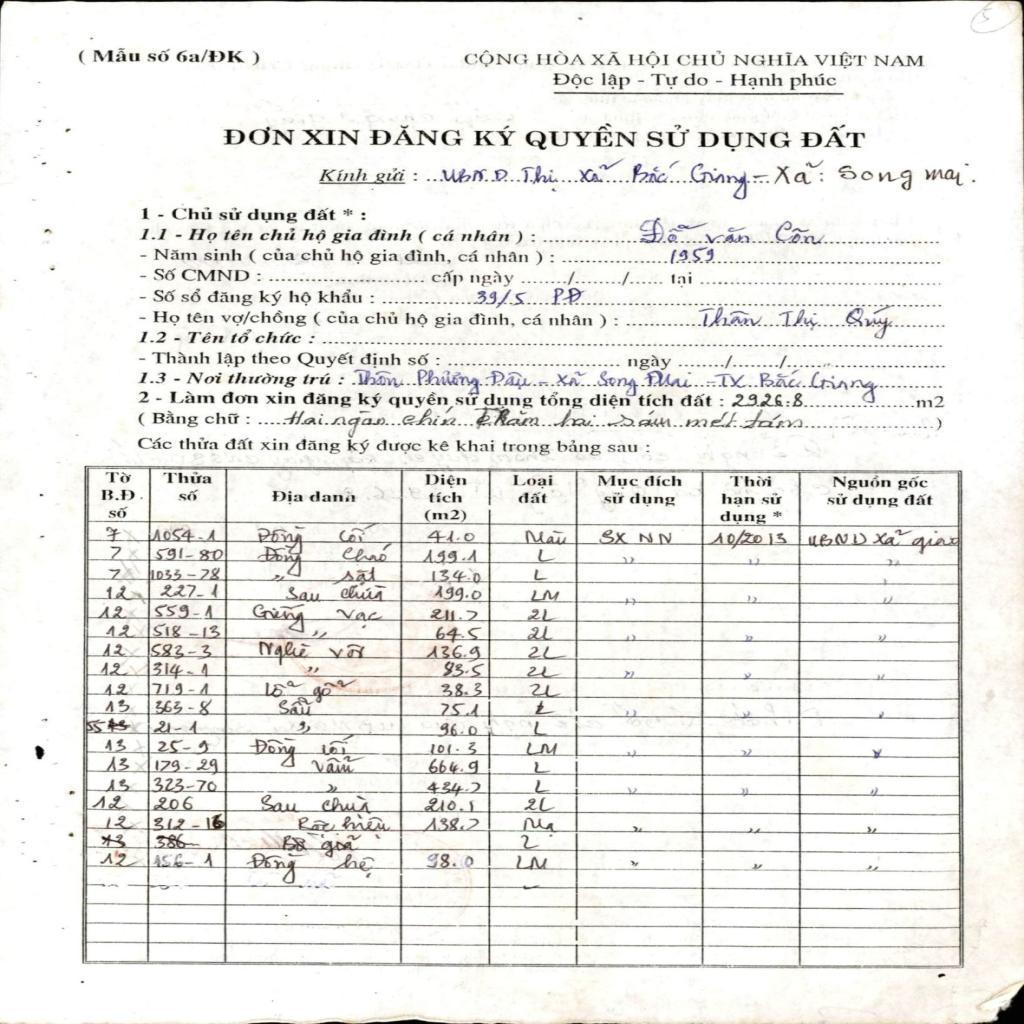 5
( Mẫu số 6a/ĐK )
CỘNG HÒA XÃ HỘI CHỦ NGHĨA VIỆT NAM
Độc lập - Tự do - Hạnh phúc
ĐƠN XIN ĐĂNG KÝ QUYỀN SỬ DỤNG ĐẤT
Kính gửi : UBND Thị Xã Bắc Giang - Xã: Song mai.
1 - Chủ sử dụng đất * :
1.1 - Họ tên chủ hộ gia đình ( cá nhân ) : Đỗ Văn Côn
- Năm sinh ( của chủ hộ gia đình, cá nhân ) : 1959
- Số CMND : cấp ngày / / tại
- Số sổ đăng ký hộ khẩu : 39/5 PĐ
- Họ tên vợ/chồng ( của chủ hộ gia đình, cá nhân ) : Thân Thị Quý
1.2 - Tên tổ chức :
- Thành lập theo Quyết định số : ngày / /
1.3 - Nơi thường trú : Thôn Phương Đậu - Xã Song Mai - TX Bắc Giang
2 - Làm đơn xin đăng ký quyền sử dụng tổng diện tích đất : 2926.8 m2
( Bằng chữ : Hai ngàn chín trăm hai sáu mét tám )
Các thửa đất xin đăng ký được kê khai trong bảng sau :
Tờ B.Đ. số Thửa số Địa danh Diện tích (m2) Loại đất Mục đích sử dụng Thời hạn sử dụng * Nguồn gốc sử dụng đất
7 1054-1 Đồng cối 41.0 Màu SX NN 10/2013 UBND Xã giao
7 591-80 Đồng 199.1 L " " "
7 1033-78 " sặt 134.0 L
12 227-1 Sau chùa 199.0 LM " " "
12 559-1 Giếng vạc 211.7 2L
12 518-13 " 64.5 2L " " "
12 583-3 Nghè vối 136.9 2L
12 314-1 " 83.5 2L " " "
12 719-1 38.3 2L
13 363-8 Sầu 75.1 L " " "
55 21-1 " 96.0 L
13 25-9 Đồng cối 101.3 LM " " "
13 179-29 664.9 L
13 323-70 " 434.7 L " " "
12 206 Sau chùa 210.1 2L
12 312-16 Rộc hiệu 138.7 Mạ " " "
13 386 Bồ giã 2
12 156-1 Đồng hệ 98.0 LM " " "